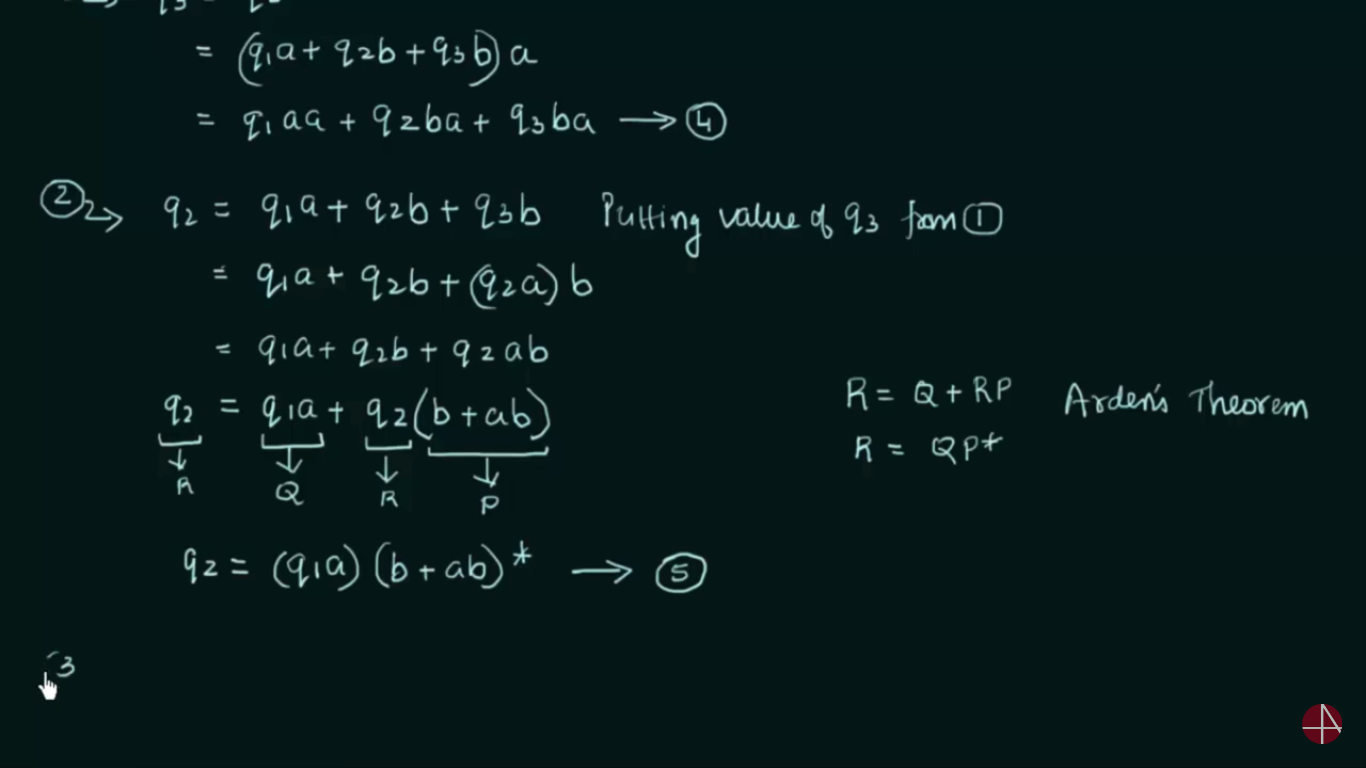 = (q₁a + q₂b + q₃b) a
= q₁aa + q₂ba + q₃ba → ④
② → q₂ = q₁a + q₂b + q₃b Putting value of q₃ from ①
= q₁a + q₂b + (q₂a) b
= q₁a + q₂b + q₂ab
q₂ = q₁a + q₂(b + ab)
R Q R P
R = Q + RP Arden's Theorem
R = QP*
q₂ = (q₁a) (b + ab)* → ⑤
3